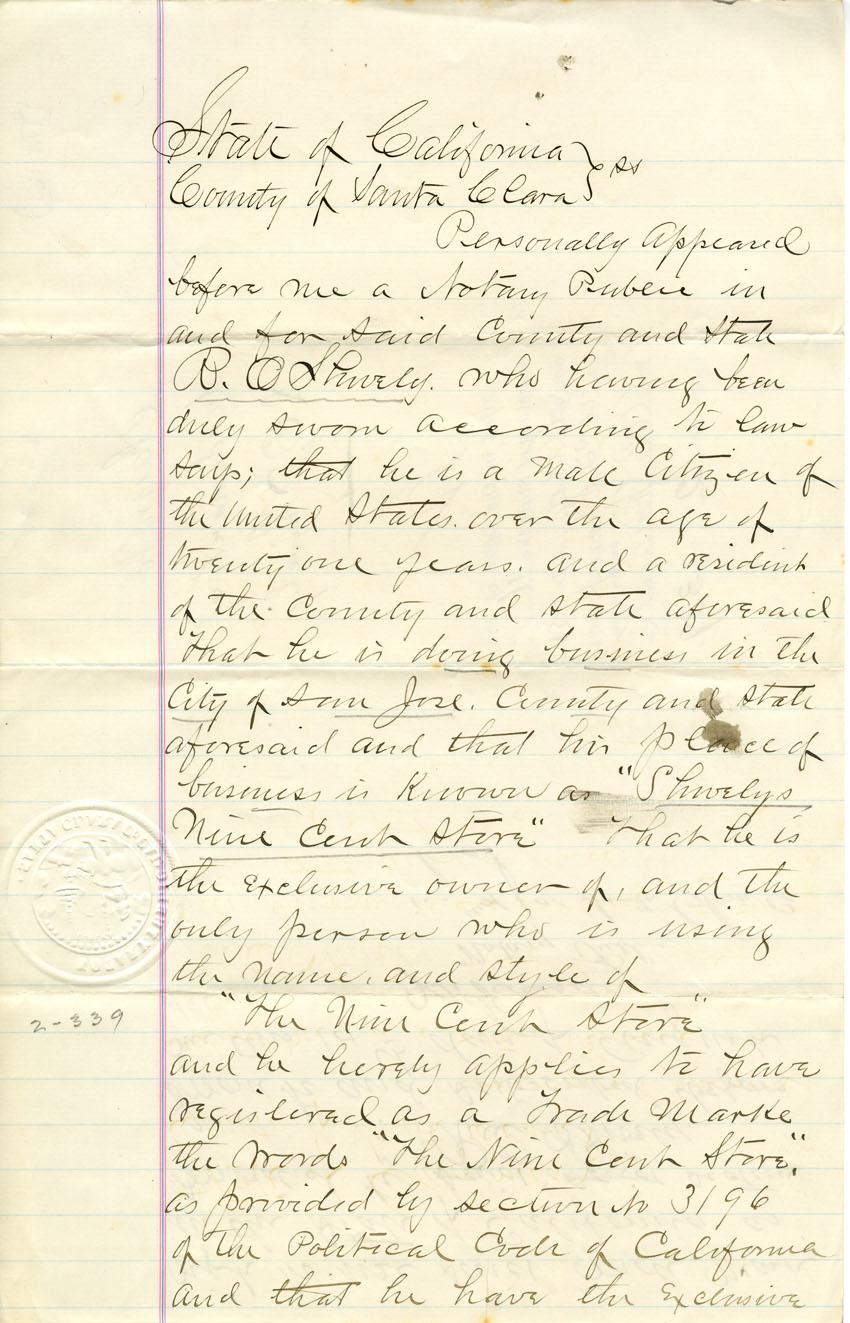 State of California } ss
County of Santa Clara
Personally Appeared
before me a Notary Public in
and for said County and State
B. C Shively. who having been
duly sworn according to law
says; that he is a Male Citizen of
the United States. over the age of
twenty one years. and a resident
of the County and State aforesaid
that he is doing business in the
City of San Jose. County and State
aforesaid and that his place of
business is Known as "Shivelys
Nine Cent Store" That he is
the exclusive owner of, and the
only person who is using
the name, and style of
"The Nine Cent Store"
and he hereby applies to have
registered as a Trade Marke
the words "The Nine Cent Store".
as provided by section No 3196
of the Political Code of California
and that he have the Exclusive
2-339